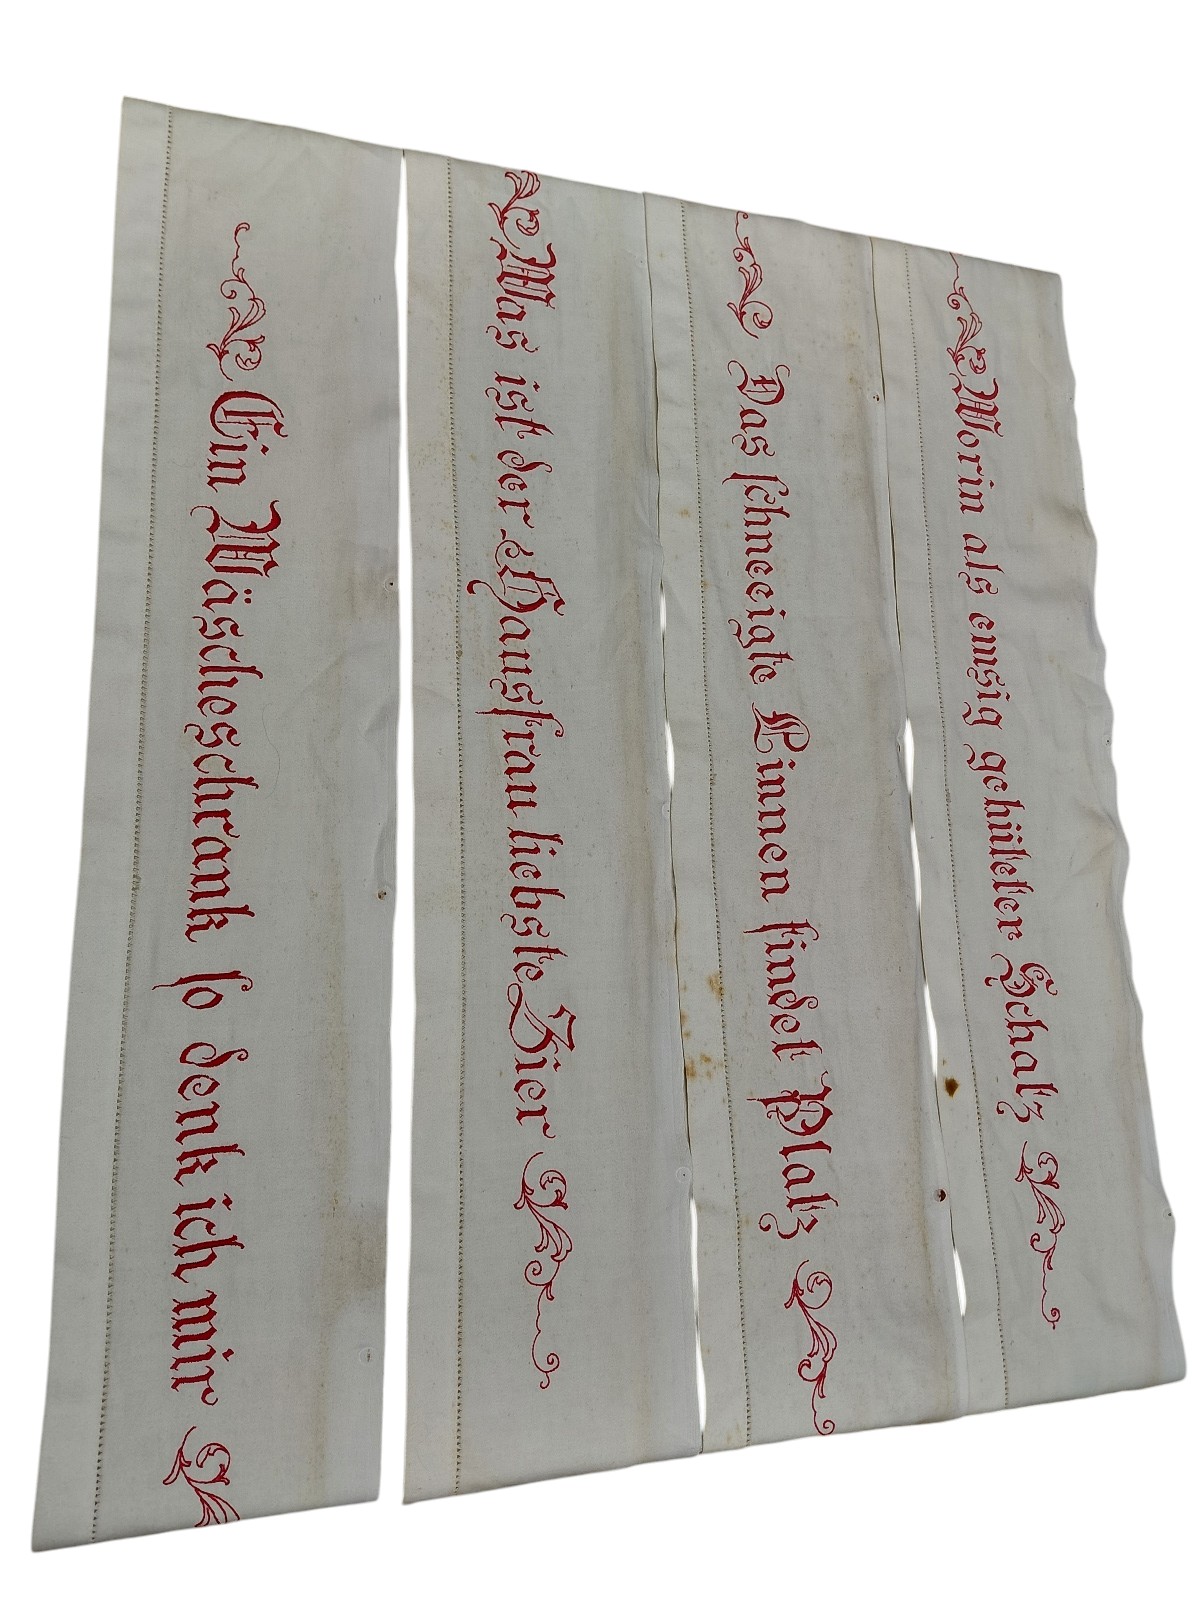 Ein Wäscheschrank so denk ich mir
Was ist der Hausfrau liebste Zier
Das schneeigte Linnen findet Platz
Worin als emsig gehüteter Schatz